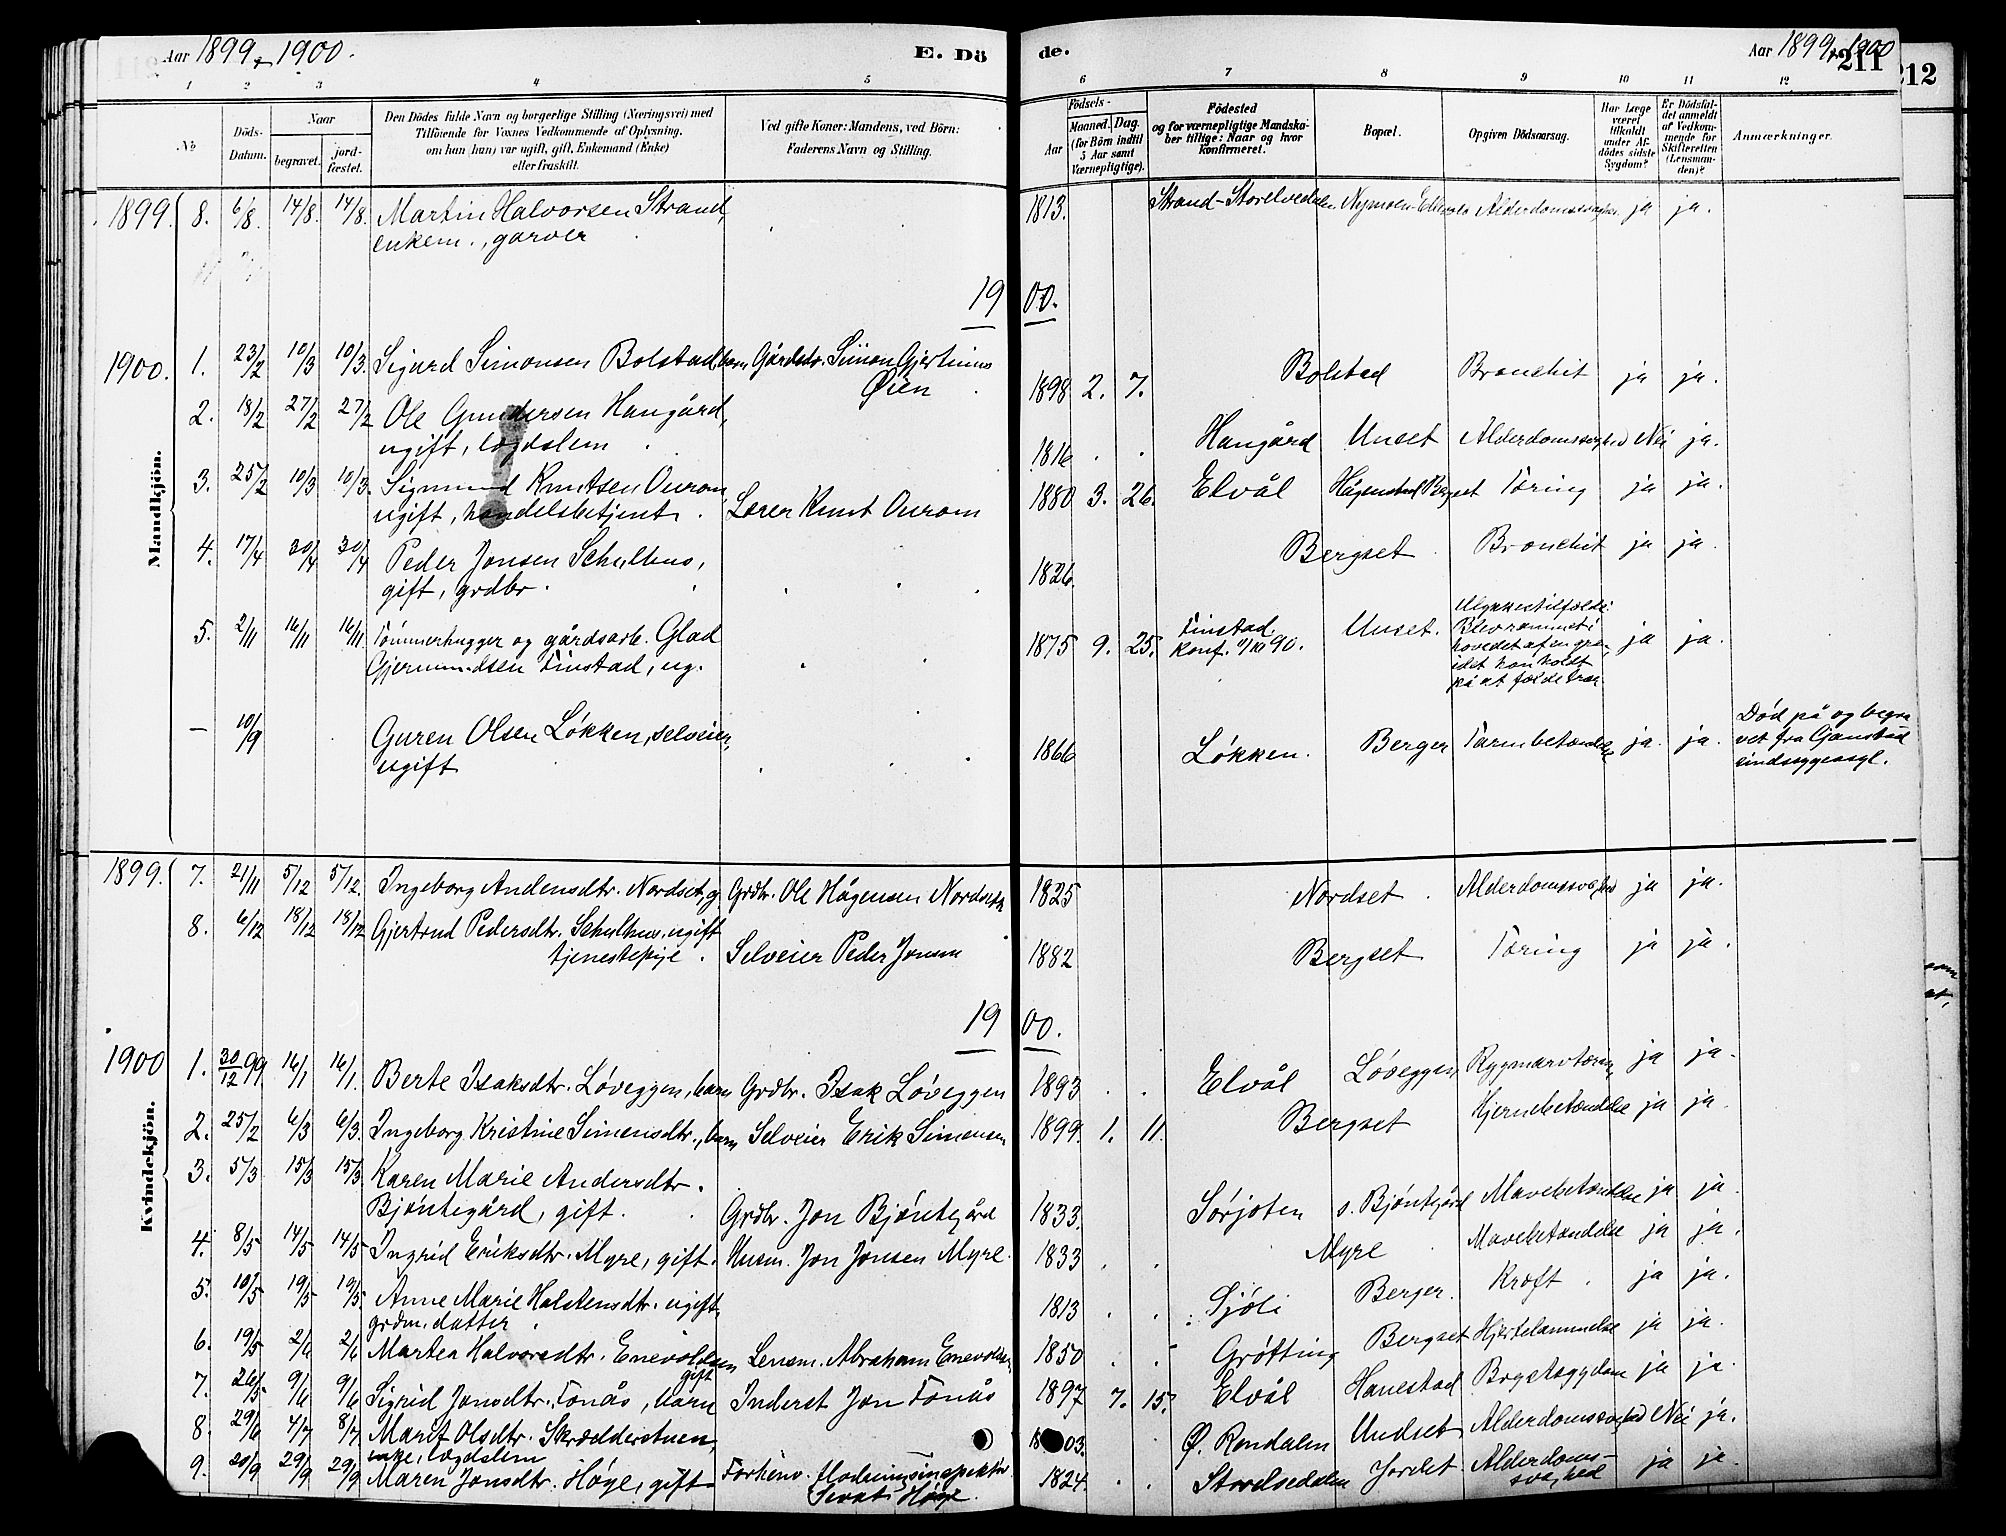 Aar 1899 & 1900.
E. Dö
de.
Aar 1899 & 1900
211
212
1 2 3 4 5 6 7 8 9 10 11 12
No
Döds-Datum.
Naar
begravet. jord-fæstet.
Den Dödes fulde Navn og borgerlige Stilling (Næringsvei) med
Tilföiende for Voxnes Vedkommende af Oplysning,
om han (hun) var ugift, gift, Enkemand (Enke)
eller fraskilt.
Ved gifte Koner: Mandens, ved Börn:
Faderens Navn og Stilling.
Födsels-
Aar
Maaned. Dag.
(for Börn indtil
5 Aar samt
Værnepligtige).
Födested
og for værnepligtige Mandska-
ber tillige: Naar og hvor
konfirmeret.
Bopæl.
Opgiven Dödsaarsag.
Har Læge
været
tilkaldt
under Af-
dödes sidste
Sygdom?
Er Dödsfal-
det anmeldt
af Vedkom-
mende for
Skifteretten
(Lensman-
den)?
Anmærkninger.
Mandkjön.
1899. 8. 6/8 14/8. 14/8. Martin Halvorsen Strand, 1813. Strand-Storelvedalen Nymoen Alderdomssvaghed ja ja.
enkem., garver
19 00.
1900. 1. 23/2 10/3 10/3. Sigurd Simonsen Bolstad, barn Gårdbr. Simon Gjertinus 1898 2. 7. Bolstad Bronchit ja ja.
Øien
2. 18/2 27/2 27/2 Ole Gundersen Hangård, 1816 Hangård Unset Alderdomssvaghed Nei ja.
ugift, lægdslem
3. 25/2 10/3 10/3. Sigmund Knutsen Ourom, 1880 3. 26. Elvål Bergset Tæring ja ja.
ugift, handelsbetjent. Lærer Knut Ourom
4. 17/4 30/4 30/4 Peder Jonsen Schulhus, 1826. Bergset Bronchit ja ja.
gift, grdbr.
5. 2/11 16/11 16/11 Tømmerhugger og gårdsarb. Glad 1875 9. 25. Finstad. Unset. Ulykkestilfælde: ja ja.
Gjermundsen Finstad, ug. konf. 90. Blev rammet i
hovedet af en gren,
idet han holdt
på at fælde træer
— 10/9 Guren Olsen Løkken, selveier, 1866 Løkken. Berger Tarmbetændelse ja. ja. Død på og begra
ugift vet fra Gaustad
sindssygeasyl.
Kvindekjön.
1899. 7. 21/11 5/12 5/12. Ingeborg Andersdtr. Nordset, g. Grdbr. Ole Hågensen Nordset 1825 Nordset. Alderdomssvaghed ja ja.
8. 6/12 18/12 18/12 Gjertrud Pedersdtr. Schulhus, ugift 1882 Bergset Tæring ja ja.
tjenestepige. Selveier Peder Jonsen
19 00.
1900 1. 30/12 99 16/1 16/1. Berte Isaksdtr. Løveggen, barn Grdbr. Isak Løveggen 1893 Elvål Løveggen Rygmarvtæring ja ja.
2. 25/2 6/3 6/3. Ingeborg Kristine Simensdtr., barn Selveier Erik Simensen 1899. 1. 11. Bergset Hjernebetændelse ja ja.
3. 5/3 15/3 15/3. Karen Marie Andersdtr.
Bjøntegård, gift. Grdbr. Jon Bjøntegård 1833. Sørjoten s. Bjøntegård Mavebetændelse ja ja.
4. 8/5 14/5 14/5 Ingrid Eriksdtr. Myre, gift. Husm. Jon Jonsen Myre. 1833 Myre Mavebetændelse ja ja.
5. 10/5 19/5 19/5. Anne Marie Halstensdtr. ugift, 1813 Sjøli Berger. Kræft. ja ja.
grdm. datter
6. 19/5 2/6 2/6 Marten Halvorsdtr. Enevoldsen Lensm. Abraham Enevoldsen 1850 Grøtting Bergset Hjertelammelse ja ja.
gift
7. 26/5 9/6 9/6 Sigrid Jonsdtr. Fonås, barn Inderst Jon Fonås 1897 7. 15. Elvål Hanestad Brystsygdom ja ja
8. 29/6 4/7 8/7 Marit Olsdtr. Skrædderstuen, 1803. Ø. Rendalen Undset Alderdomssvaghed Nei ja.
enke, lægdslem
9. 20/9 29/9 29/9 Maren Jonsdtr. Høye, gift Forhenv. Flødningsinspektør 1824. Storelvedalen Jordet Alderdoms- ja ja.
Sivat Høye. svaghed